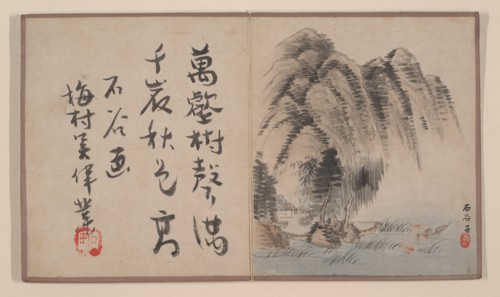 萬壑樹聲滿
千崖秋氣高
石谷画
梅村吳偉業
石谷子